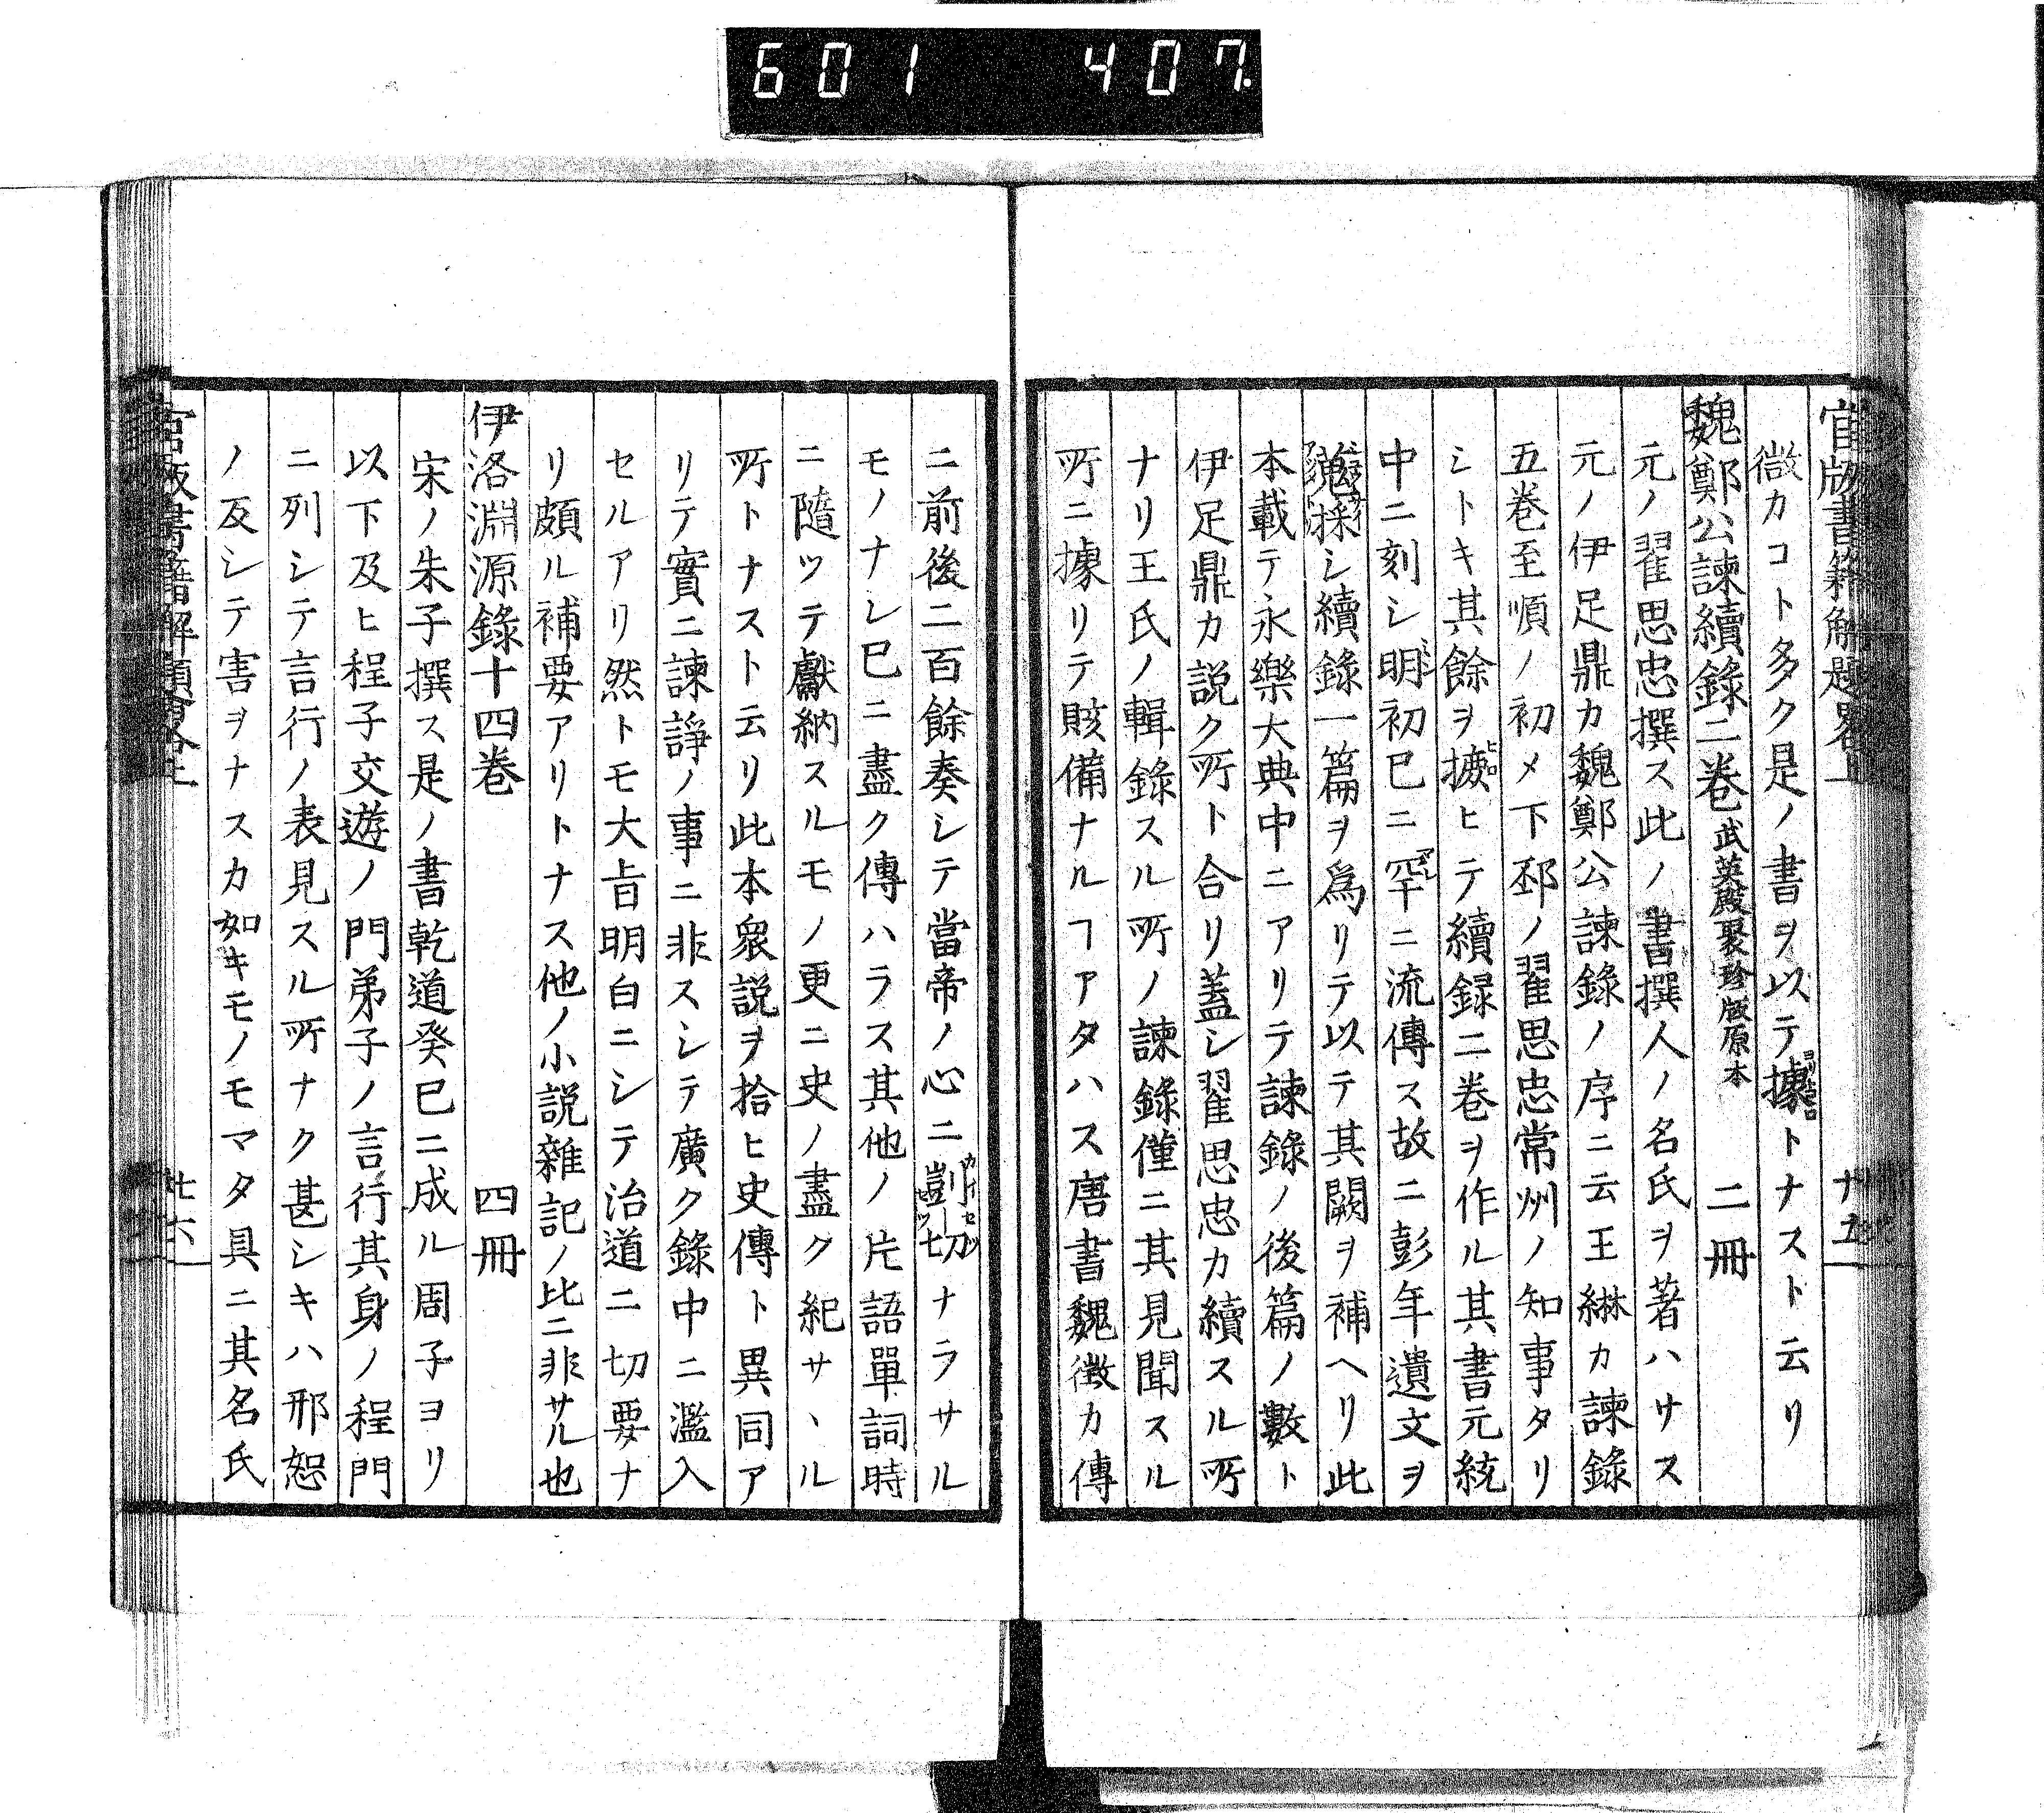 601 407.
官版書籍解題畧上 十五
徴カコト多ク是ノ書ヲ以テ據トナスト云リ
魏鄭公諫續錄二巻 武英殿聚珍版原本 二冊
元ノ翟思忠撰ス此ノ書撰人ノ名氏ヲ著ハサス
元ノ伊足鼎カ魏鄭公諫錄ノ序ニ云王綝カ諫錄
五巻至順ノ初メ下邳ノ翟思忠常州ノ知事タリ
シトキ其餘ヲ摭ヒテ續録二巻ヲ作ル其書元統
中ニ刻シ明初巳ニ罕ニ流傳ス故ニ彭年遺文ヲ
蒐採シ續錄一篇ヲ爲リテ以テ其闕ヲ補ヘリ此
本載テ永樂大典中ニアリテ諫錄ノ後篇ノ數ト
伊足鼎カ説ク所ト合リ蓋シ翟思忠カ續スル所
ナリ王氏ノ輯錄スル所ノ諫錄僅ニ其見聞スル
所ニ據リテ賅備ナルヿアタハス唐書魏徴カ傳
ニ前後二百餘奏シテ當帝ノ心ニ剴切ナラサル
モノナシ巳ニ盡ク傳ハラス其他ノ片語單詞時
ニ隨ツテ獻納スルモノ更ニ史ノ盡ク紀サヽル
所トナスト云リ此本衆説ヲ拾ヒ史傳ト異同ア
リテ實ニ諫諍ノ事ニ非スシテ廣ク錄中ニ濫入
セルアリ然トモ大旨明白ニシテ治道ニ切要ナ
リ頗ル補要アリトナス他ノ小説雜記ノ比ニ非サル也
伊洛淵源錄十四巻 四冊
宋ノ朱子撰ス是ノ書乾道癸巳ニ成ル周子ヨリ
以下及ヒ程子交遊ノ門弟子ノ言行其身ノ程門
ニ列シテ言行ノ表見スル所ナク甚シキハ邢恕
ノ反シテ害ヲナスカ如キモノモマタ具ニ其名氏
官版書籍解題畧上 廿六